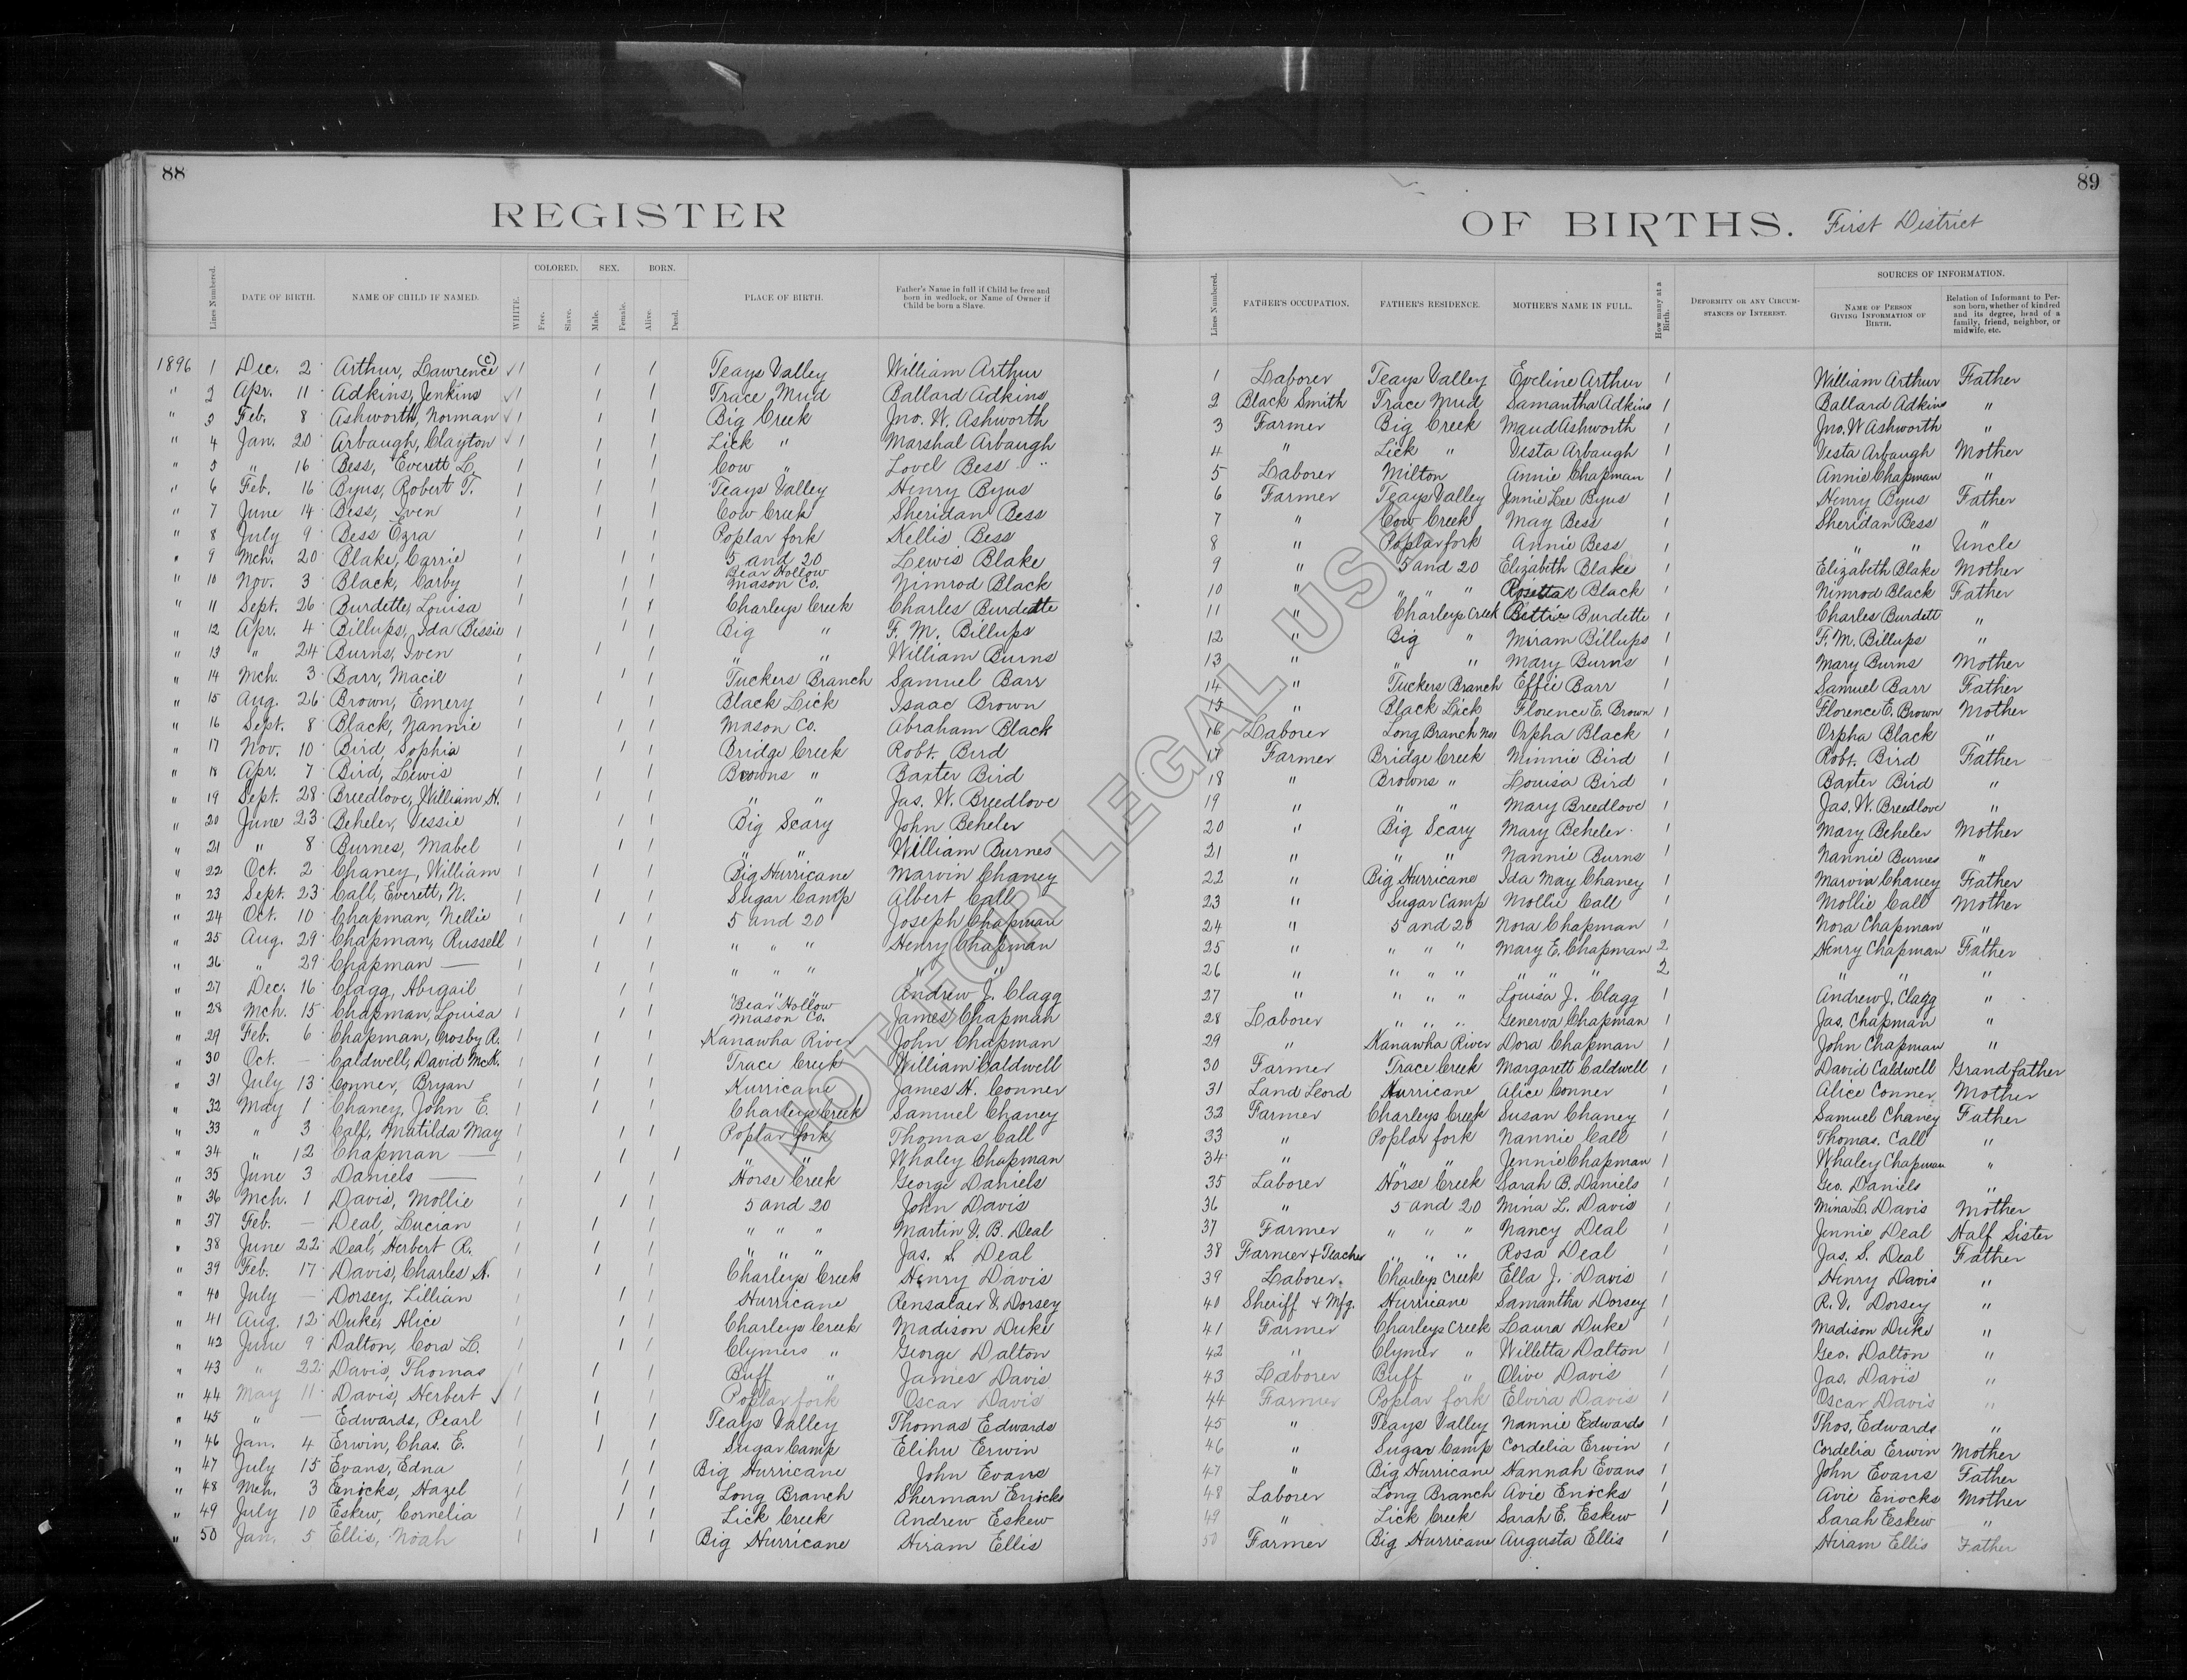 88
89
REGISTER
OF BIRTHS. First District
Lines Numbered. DATE OF BIRTH. NAME OF CHILD IF NAMED. WHITE. COLORED. Free. Slave. SEX. Male. Female. BORN. Alive. Dead. PLACE OF BIRTH. Father's Name in full if Child be free and born in wedlock, or Name of Owner if Child be born a Slave.
Lines Numbered. FATHER'S OCCUPATION. FATHER'S RESIDENCE. MOTHER'S NAME IN FULL. How many at a Birth. DEFORMITY OR ANY CIRCUMSTANCES OF INTEREST. SOURCES OF INFORMATION. NAME OF PERSON GIVING INFORMATION OF BIRTH. Relation of Informant to Person born, whether of kindred and its degree, head of a family, friend, neighbor, or midwife, etc.
1896 1 Dec. 2 Arthur, Lawrence (C) ✓ 1 1 1 Teays Valley William Arthur 1 Laborer Teays Valley Eveline Arthur 1 William Arthur Father
" 2 Apr. 11 Adkins, Jenkins ✓ 1 1 1 Trace Mud Ballard Adkins 2 Black Smith Trace Mud Samantha Adkins 1 Ballard Adkins "
" 3 Feb. 8 Ashworth, Norman ✓ 1 1 1 Big Creek Jno. W. Ashworth 3 Farmer Big Creek Maud Ashworth 1 Jno. W Ashworth "
" 4 Jan. 20 Arbaugh, Clayton ✓ 1 1 1 Lick " Marshal Arbaugh 4 " Lick " Vesta Arbaugh 1 Vesta Arbaugh Mother
" 5 " 16 Bess, Everett L. 1 1 1 Cow " Lovel Bess 5 Laborer Milton Annie Chapman 1 Annie Chapman "
" 6 Feb. 16 Byus, Robert T. 1 1 1 Teays Valley Henry Byus 6 Farmer Teays Valley Jennie Lee Byus 1 Henry Byus Father
" 7 June 14 Bess, Iven 1 1 1 Cow Creek Sheridan Bess 7 " Cow Creek May Bess 1 Sheridan Bess "
" 8 July 9 Bess Ezra 1 1 1 Poplar fork Kellis Bess 8 " Poplar fork Annie Bess 1 " " Uncle
" 9 Mch. 20 Blake, Carrie 1 1 1 5 and 20 Lewis Blake 9 " 5 and 20 Elizabeth Blake 1 Elizabeth Blake Mother
" 10 Nov. 3 Black, Carby 1 1 1 Bear Hollow Mason Co. Nimrod Black 10 " " " " Rosetta Black 1 Nimrod Black Father
" 11 Sept. 26 Burdette, Louisa 1 1 Charleys Creek Charles Burdette 11 " Charleys Creek Bettie Burdette 1 Charles Burdett "
" 12 Apr. 4 Billups, Ida Bessie 1 1 1 Big " F. M. Billups 12 " Big " Miram Billups 1 F. M. Billups "
" 13 " 24 Burns, Iven 1 1 1 " " William Burns 13 " " " Mary Burns 1 Mary Burns Mother
" 14 Mch. 3 Barr, Macie 1 1 1 Tuckers Branch Samuel Barr 14 " Tuckers Branch Effie Barr 1 Samuel Barr Father
" 15 Aug. 26 Brown, Emery 1 1 1 Black Lick Isaac Brown 15 " Black Lick Florence E. Brown 1 Florence E. Brown Mother
" 16 Sept. 8 Black, Nannie 1 1 1 Mason Co. Abraham Black 16 Laborer Long Branch Orpha Black 1 Orpha Black "
" 17 Nov. 10 Bird, Sophia 1 1 1 Bridge Creek Robt. Bird 17 Farmer Bridge Creek Minnie Bird 1 Robt. Bird Father
" 18 Apr. 7 Bird, Lewis 1 1 1 Browns " Baxter Bird 18 " Browns " Louisa Bird 1 Baxter Bird "
" 19 Sept. 28 Breedlove, William H. 1 1 1 " " Jas. W. Breedlove 19 " " " Mary Breedlove 1 Jas. W. Breedlove "
" 20 June 23 Beheler, Vessie 1 1 1 Big Scary John Beheler 20 " Big Scary Mary Beheler 1 Mary Beheler Mother
" 21 " 8 Burnes, Mabel 1 1 1 " " William Burnes 21 " " " Nannie Burns 1 Nannie Burnes "
" 22 Oct. 2 Chaney, William 1 1 1 Big Hurricane Marvin Chaney 22 " Big Hurricane Ida May Chaney 1 Marvin Chaney Father
" 23 Sept. 23 Call, Everett, N. 1 1 1 Sugar Camp Albert Call 23 " Sugar Camp Mollie Call 1 Mollie Call Mother
" 24 Oct. 10 Chapman, Nellie 1 1 1 5 and 20 Joseph Chapman 24 " 5 and 20 Nora Chapman 1 Nora Chapman "
" 25 Aug. 29 Chapman, Russell 1 1 1 " " " Henry Chapman 25 " " " " Mary E. Chapman 2 Henry Chapman Father
" 26 " 29 Chapman — 1 1 1 " " " " " 26 " " " " " " " 2 " " "
" 27 Dec. 16 Clagg, Abigail 1 1 1 " " " Andrew J. Clagg 27 " " " " Louisa J. Clagg 1 Andrew J. Clagg "
" 28 Mch. 15 Chapman, Louisa 1 1 1 Bear Hollow Mason Co. James Chapman 28 Laborer " " " Generva Chapman 1 Jas. Chapman "
" 29 Feb. 6 Chapman, Crosby R. 1 1 1 Kanawha River John Chapman 29 " Kanawha River Dora Chapman 1 John Chapman "
" 30 Oct. — Caldwell, David McK. 1 1 1 Trace Creek William Caldwell 30 Farmer Trace Creek Margarett Caldwell 1 David Caldwell Grandfather
" 31 July 13 Conner, Bryan 1 1 1 Hurricane James H. Conner 31 Land Leord Hurricane Alice Conner 1 Alice Conner Mother
" 32 May 1 Chaney, John E. 1 1 1 Charleys Creek Samuel Chaney 32 Farmer Charleys Creek Susan Chaney 1 Samuel Chaney Father
" 33 " 3 Call, Matilda May 1 1 1 Poplar fork Thomas Call 33 " Poplar fork Nannie Call 1 Thomas. Call "
" 34 " 12 Chapman — 1 1 1 " " Whaley Chapman 34 " " " Jennie Chapman 1 Whaley Chapman "
" 35 June 3 Daniels — 1 1 1 Horse Creek George Daniels 35 Laborer Horse Creek Sarah B. Daniels 1 Geo. Daniels "
" 36 Mch. 1 Davis, Mollie 1 1 1 5 and 20 John Davis 36 " 5 and 20 Mina L. Davis 1 Mina L. Davis Mother
" 37 Feb. — Deal, Lucian 1 1 1 " " " Martin V. B. Deal 37 Farmer " " " Nancy Deal 1 Jennie Deal Half Sister
" 38 June 22 Deal, Herbert R. 1 1 1 " " " Jas. S. Deal 38 Farmer + Teacher " " " Rosa Deal 1 Jas. S. Deal Father
" 39 Feb. 17 Davis, Charles H. 1 1 1 Charleys Creek Henry Davis 39 Laborer. Charleys Creek Ella J. Davis 1 Henry Davis "
" 40 July — Dorsey, Lillian 1 1 1 Hurricane Rensalaer V. Dorsey 40 Sheriff + Mfg. Hurricane Samantha Dorsey 1 R. V. Dorsey "
" 41 Aug. 12 Duke, Alice 1 1 1 Charleys Creek Madison Duke 41 Farmer Charleys Creek Laura Duke 1 Madison Duke "
" 42 June 9 Dalton, Cora L. 1 1 1 Clymers " George Dalton 42 " Clymer " Willetta Dalton 1 Geo. Dalton "
" 43 " 22 Davis, Thomas 1 1 1 Buff " James Davis 43 Laborer Buff " Olive Davis 1 Jas. Davis "
" 44 May 11 Davis, Herbert ✓ 1 1 1 Poplar fork Oscar Davis 44 Farmer Poplar fork Elvira Davis 1 Oscar Davis "
" 45 " — Edwards, Pearl 1 1 1 Teays Valley Thomas Edwards 45 " Teays Valley Nannie Edwards 1 Thos. Edwards "
" 46 Jan. 4 Erwin, Chas. E. 1 1 1 Sugar Camp Elihu Erwin 46 " Sugar Camp Cordelia Erwin 1 Cordelia Erwin Mother
" 47 July 15 Evans, Edna 1 1 1 Big Hurricane John Evans 47 " Big Hurricane Hannah Evans 1 John Evans Father
" 48 Mch. 3 Enocks, Hazel 1 1 1 Long Branch Sherman Enocks 48 Laborer Long Branch Avie Enocks 1 Avie Enocks Mother
" 49 July 10 Eskew, Cornelia 1 1 1 Lick Creek Andrew Eskew 49 " Lick Creek Sarah E. Eskew 1 Sarah Eskew "
" 50 Jan. 5 Ellis, Noah 1 1 1 Big Hurricane Hiram Ellis 50 Farmer Big Hurricane Augusta Ellis 1 Hiram Ellis Father
NOT FOR LEGAL USE